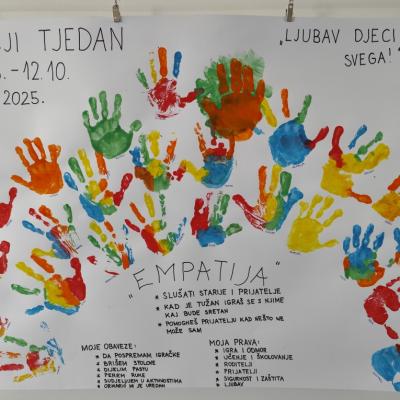 JI TJEDAN
.-12.10.
2025.
„LJUBAV DJECI
SVEGA!"
„EMPATIJA"
* SLUŠATI STARIJE I PRIJATELJE
* KAD JE TUŽAN IGRAŠ SE S NJIME
KAJ BUDE SRETAN
* POMOGNEŠ PRIJATELJU KAD NEŠTO NE
MOŽE SAM
MOJE OBVEZE:
* DA POSPREMAM IGRAČKE
* BRIŠEM STOLOVE
* DIJELIM PASTU
* PEREM RUKE
* SUDJELUJEM U AKTIVNOSTIMA
* ORMARIĆ MI JE UREDAN
MOJA PRAVA:
* IGRA I ODMOR
* UČENJE I ŠKOLOVANJE
* RODITELJI
* PRIJATELJI
* SIGURNOST I ZAŠTITA
* LJUBAV